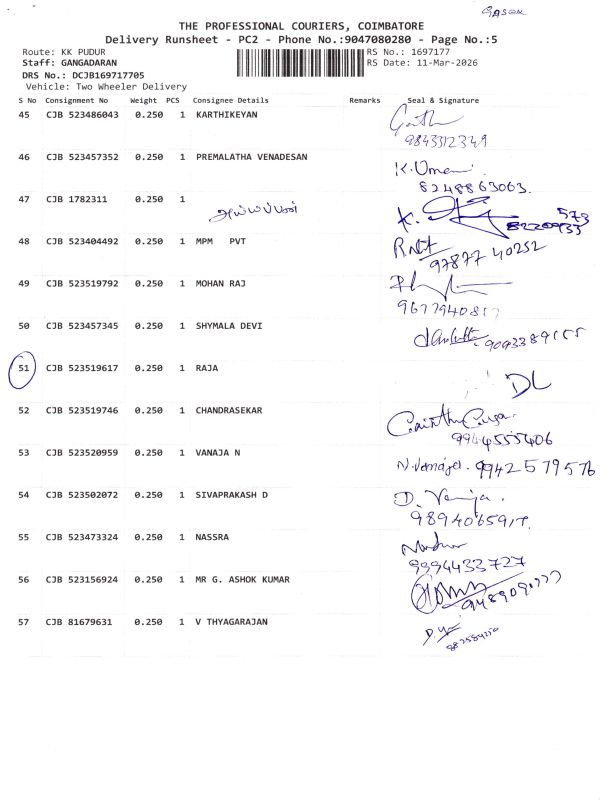 THE PROFESSIONAL COURIERS, COIMBATORE
Delivery Runsheet - PC2 - Phone No.:9047080280 - Page No.:5
Route: KK PUDUR
RS No.: 1697177
Staff: GANGADARAN
RS Date: 11-Mar-2026
DRS No.: DCJB169717705
Vehicle: Two Wheeler Delivery
S No Consignment No Weight PCS Consignee Details Remarks Seal & Signature
45 CJB 523486043 0.250 1 KARTHIKEYAN
9843312349
46 CJB 523457352 0.250 1 PREMALATHA VENADESAN
K. Uma
8248863063.
47 CJB 1782311 0.250 1
அய்யப்பன்
48 CJB 523404492 0.250 1 MPM PVT
97877 40252
49 CJB 523519792 0.250 1 MOHAN RAJ
50 CJB 523457345 0.250 1 SHYMALA DEVI
51 CJB 523519617 0.250 1 RAJA
DL
52 CJB 523519746 0.250 1 CHANDRASEKAR
53 CJB 523520959 0.250 1 VANAJA N
9942579576
54 CJB 523502072 0.250 1 SIVAPRAKASH D
55 CJB 523473324 0.250 1 NASSRA
9994433727
56 CJB 523156924 0.250 1 MR G. ASHOK KUMAR
57 CJB 81679631 0.250 1 V THYAGARAJAN